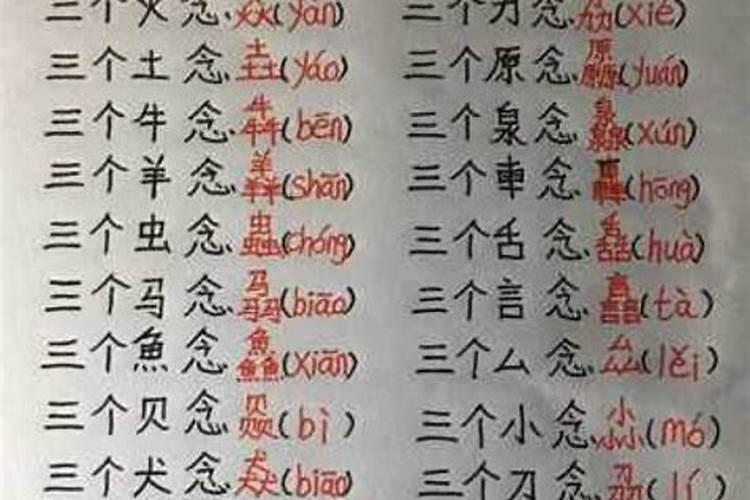 三个火念焱(yàn)
三个土念垚(yáo)
三个牛念犇(bēn)
三个羊念羴(shān)
三个虫念蟲(chóng)
三个马念骉(biāo)
三个魚念鱻(xiān)
三个贝念赑(bì)
三个犬念猋(biāo)
三个力念劦(xié)
三个原念厵(yuán)
三个泉念灥(xún)
三个車念轟(hōng)
三个舌念舙(huà)
三个言念譶(tà)
三个厶念厽(lěi)
三个小念尛(mó)
三个刀念刕(lí)